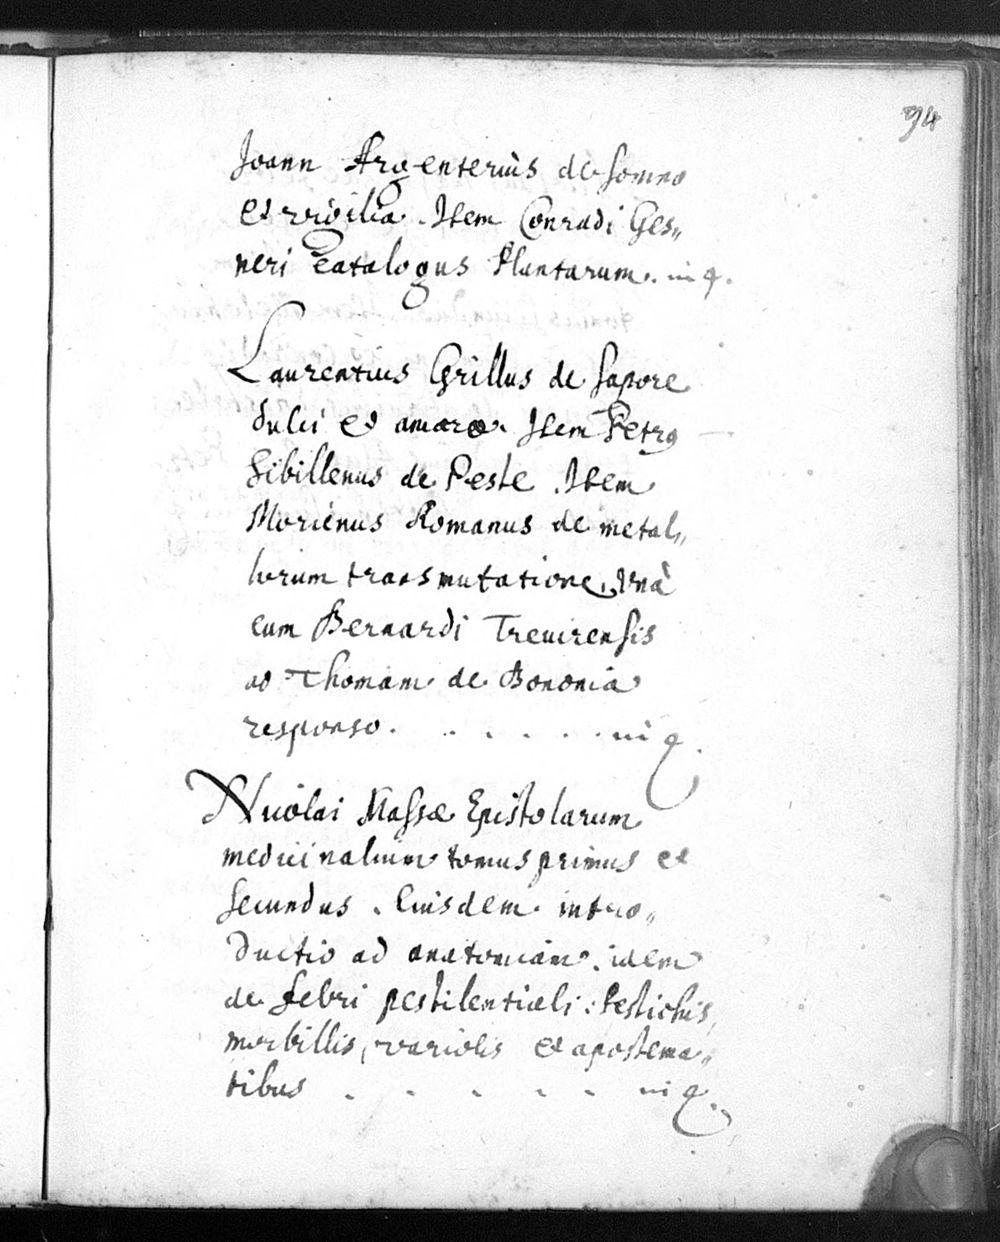 94
Joann Argenterius de somno
et vigilia. Item Conradi Ges„
neri Catalogus Plantarum. in 4.
Laurentius Grillus de sapore
dulci et amaro. Item Petrus
Sibillenus de Peste. Item
Morienus Romanus de metal„
lorum transmutatione. Unà
cum Bernardi Trevirensis
ad Thomam de Bononia
responso. . . . . . in 4.
Nicolai Massæ Epistolarum
medicinalium tomus primus et
secundus. Eiusdem intro„
ductio ad anatomiam. idem
de febri pestilentiali: Pestichis,
morbillis, variolis et apostema„
tibus . . . . . in 4.